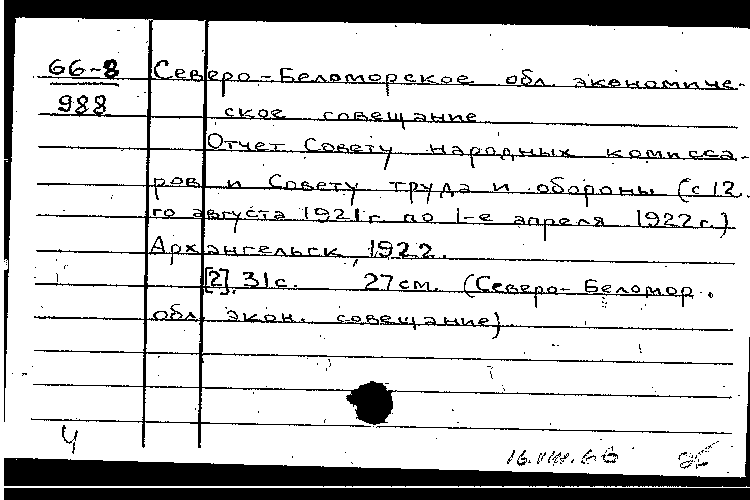 66-8 Северо-Беломорское обл. экономиче-
988 ское совещание
Отчет Совету народных комисса-
ров и Совету труда и обороны (с 12-
го августа 1921 г. по 1-е апреля 1922 г.)
Архангельск, 1922.
[2], 31 с. 27 см. (Северо-Беломор.
обл. экон. совещание).
Ч
16.VIII.66